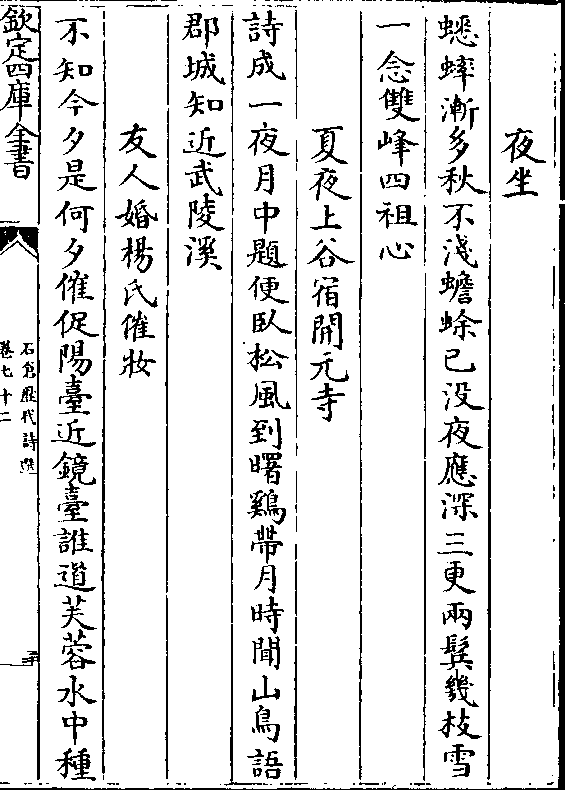 夜坐
蟋蟀漸多秋不淺蟾蜍已没夜應深三更兩鬂幾枝雪
一念雙峰四祖心
夏夜上谷宿開元寺
詩成一夜月中題便臥松風到曙鷄帶月時聞山鳥語
郡城知近武陵溪
友人婚楊氏催妝
不知今夕是何夕催促陽臺近鏡臺誰道芙蓉水中種
欽定四庫全書
石倉歴代詩選
卷七十二
二十